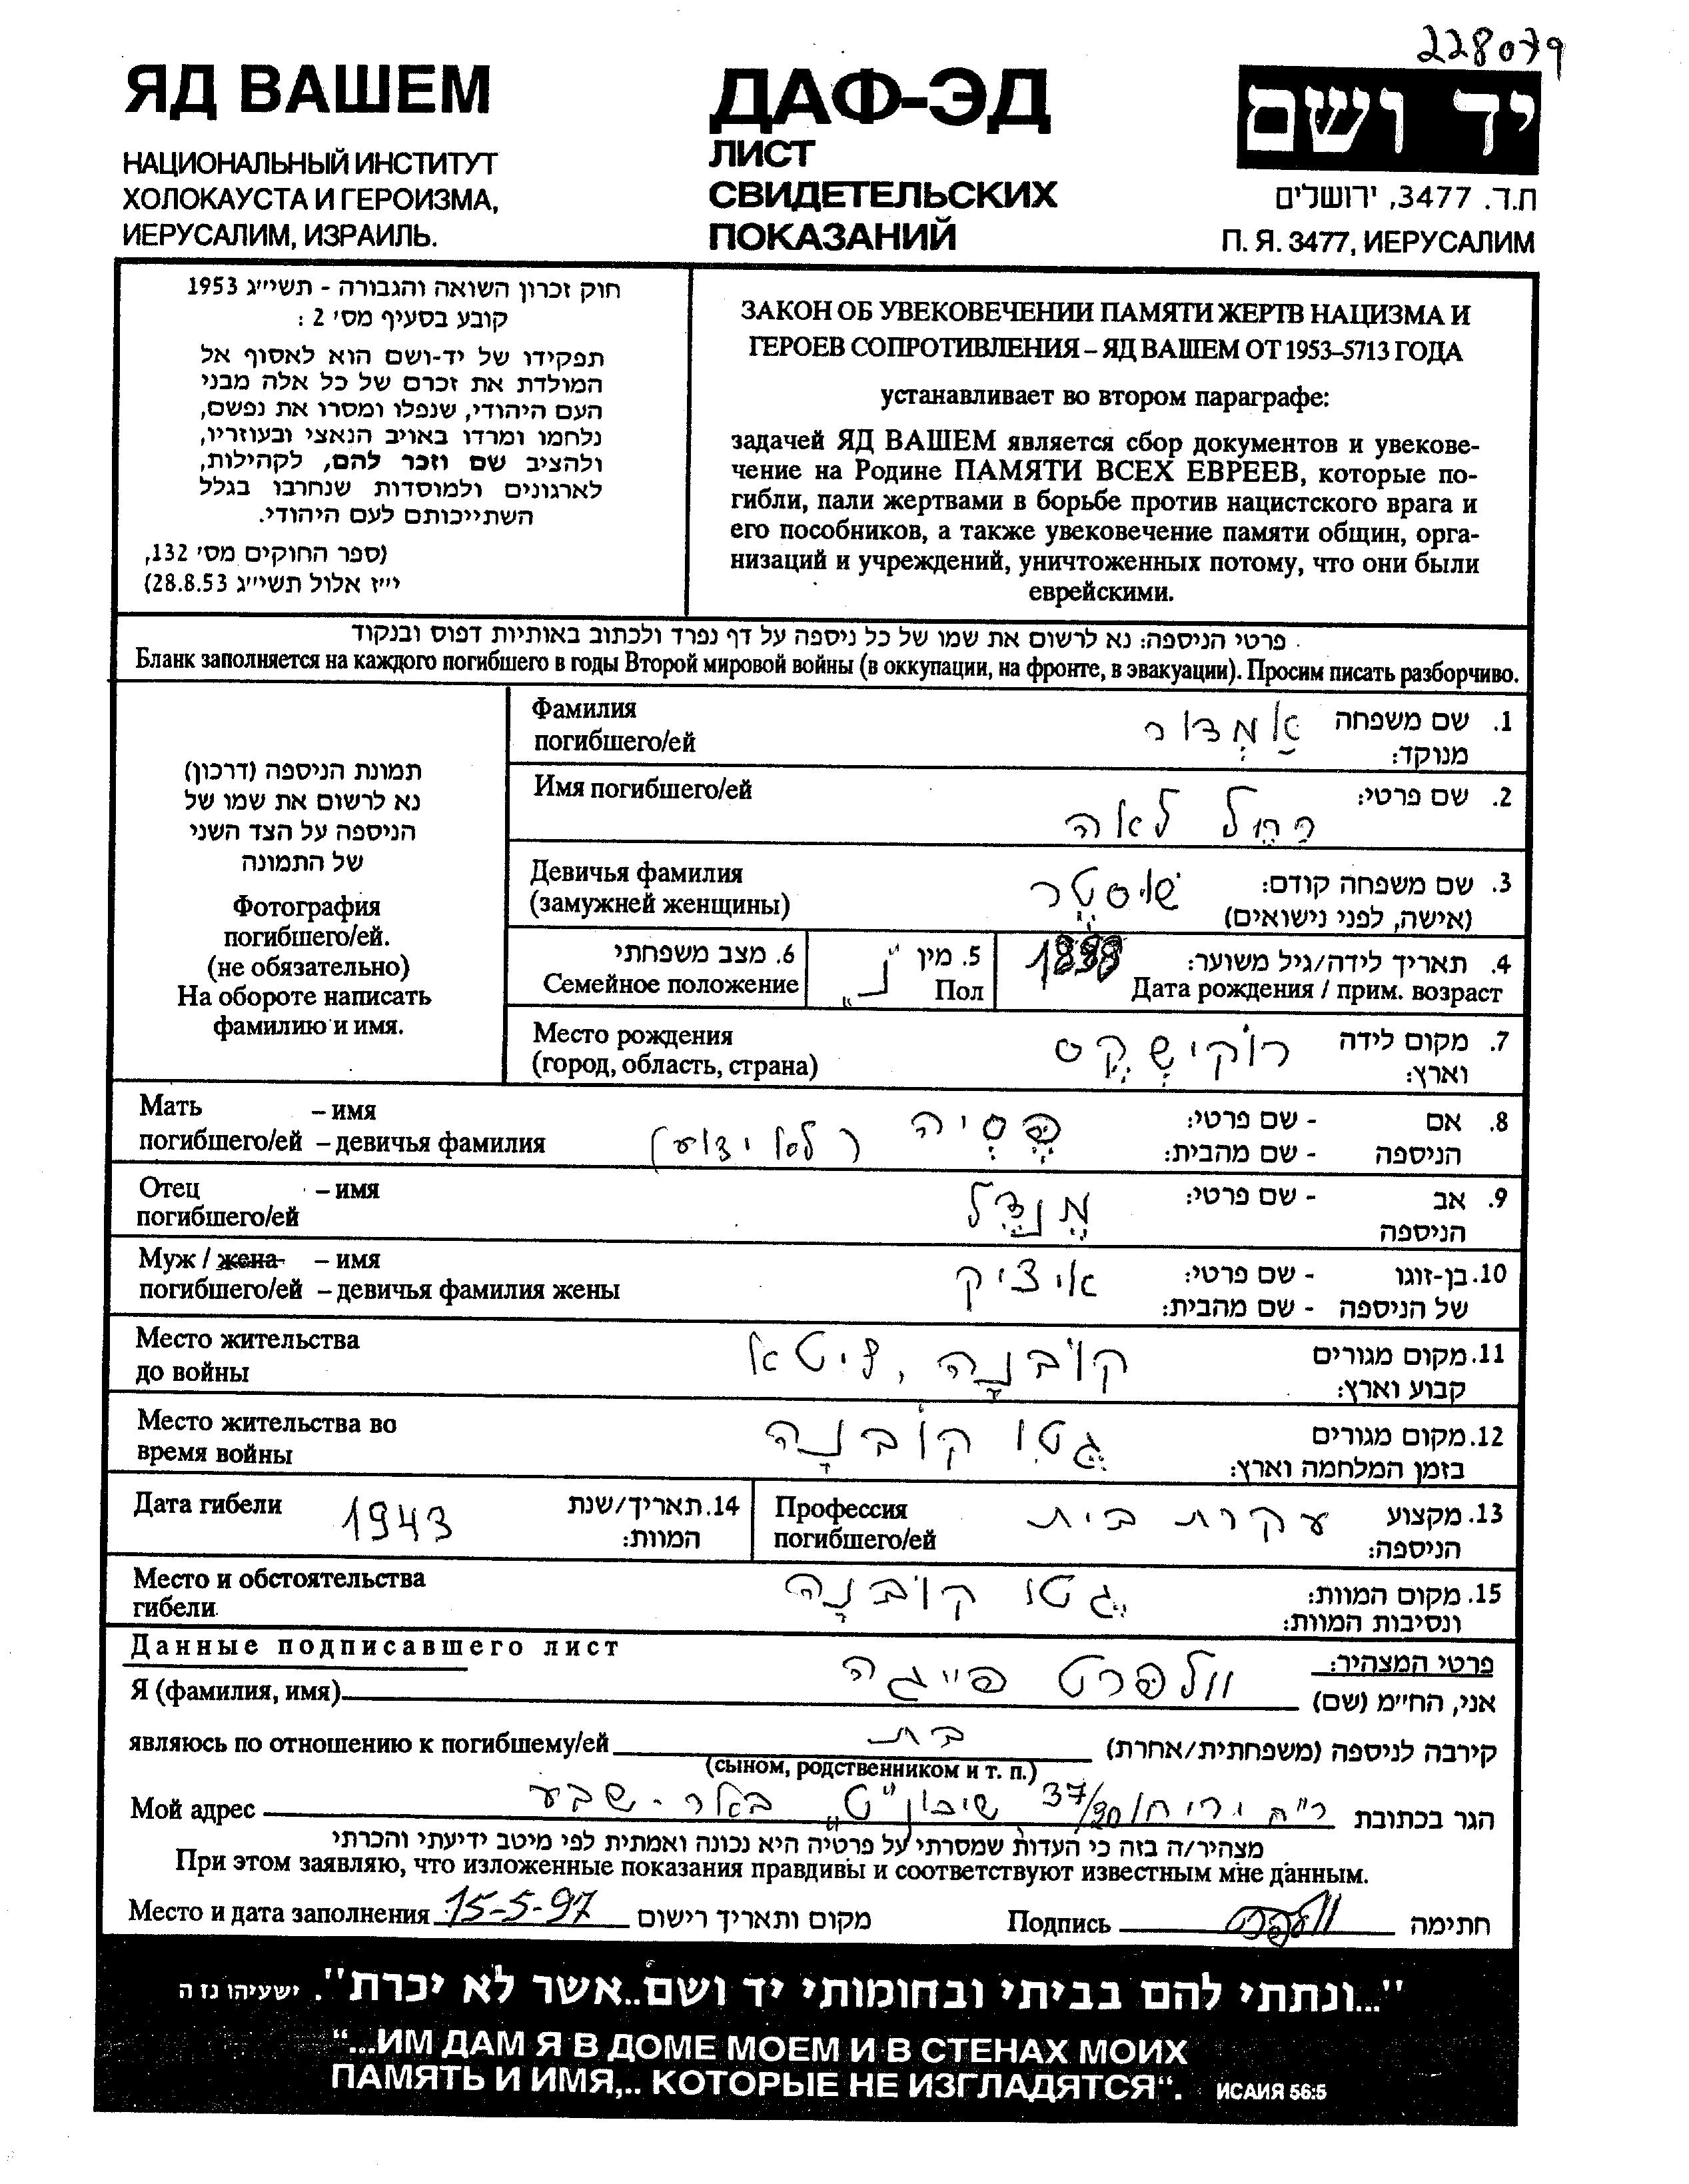 228079
ЯД ВАШЕМ
НАЦИОНАЛЬНЫЙ ИНСТИТУТ
ХОЛОКАУСТА И ГЕРОИЗМА,
ИЕРУСАЛИМ, ИЗРАИЛЬ.
ДАФ-ЭД
ЛИСТ
СВИДЕТЕЛЬСКИХ
ПОКАЗАНИЙ
יד ושם
ת.ד. 3477, ירושלים
П. Я. 3477, ИЕРУСАЛИМ
חוק זכרון השואה והגבורה - תשי״ג 1953
קובע בסעיף מס׳ 2 :
תפקידו של יד-ושם הוא לאסוף אל
המולדת את זכרם של כל אלה מבני
העם היהודי, שנפלו ומסרו את נפשם,
נלחמו ומרדו באויב הנאצי ובעוזריו,
ולהציב שם וזכר להם, לקהילות,
לארגונים ולמוסדות שנחרבו בגלל
השתייכותם לעם היהודי.
(ספר החוקים מס׳ 132,
י״ז אלול תשי״ג 28.8.53)
ЗАКОН ОБ УВЕКОВЕЧЕНИИ ПАМЯТИ ЖЕРТВ НАЦИЗМА И
ГЕРОЕВ СОПРОТИВЛЕНИЯ – ЯД ВАШЕМ ОТ 1953–5713 ГОДА
устанавливает во втором параграфе:
задачей ЯД ВАШЕМ является сбор документов и увекове-
чение на Родине ПАМЯТИ ВСЕХ ЕВРЕЕВ, которые по-
гибли, пали жертвами в борьбе против нацистского врага и
его пособников, а также увековечение памяти общин, орга-
низаций и учреждений, уничтоженных потому, что они были
еврейскими.
פרטי הניספה: נא לרשום את שמו של כל ניספה על דף נפרד ולכתוב באותיות דפוס ובנקוד
Бланк заполняется на каждого погибшего в годы Второй мировой войны (в оккупации, на фронте, в эвакуации). Просим писать разборчиво.
תמונת הניספה (דרכון)
נא לרשום את שמו של
הניספה על הצד השני
של התמונה
Фотография
погибшего/ей.
(не обязательно)
На обороте написать
фамилию и имя.
Фамилия
погибшего/ей
1. שם משפחה אַמְדוּר
מנוקד:
Имя погибшего/ей
2. שם פרטי: רחל לאה
Девичья фамилия
(замужней женщины)
3. שם משפחה קודם: שוּסטֶר
(אישה, לפני נישואים)
4. תאריך לידה/גיל משוער: 1888
Дата рождения / прим. возраст
5. מין "נ"
Пол
6. מצב משפחתי
Семейное положение
Место рождения
(город, область, страна)
7. מקום לידה רוֹקישקס
וארץ:
Мать – имя
погибшего/ей – девичья фамилия
8. אם - שם פרטי: פסיה (לא ידוע)
הניספה - שם מהבית:
Отец – имя
погибшего/ей
9. אב - שם פרטי: מנדל
הניספה
Муж / жена – имя
погибшего/ей – девичья фамилия жены
10. בן-זוגו - שם פרטי: איציק
של הניספה - שם מהבית:
Место жительства
до войны
11. מקום מגורים קוֹבנָה, ליטא
קבוע וארץ:
Место жительства во
время войны
12. מקום מגורים גטו קוֹבנָה
בזמן המלחמה וארץ:
Дата гибели 1943
14. תאריך/שנת
המוות:
Профессия
погибшего/ей
13. מקצוע עקרת בית
הניספה:
Место и обстоятельства
гибели
15. מקום המוות: גטו קוֹבנָה
ונסיבות המוות:
Данные подписавшего лист
פרטי המצהיר:
Я (фамилия, имя)
אני, החי״מ (שם) וולפרט פייגה
являюсь по отношению к погибшему/ей
קירבה לניספה (משפחתית/אחרת) בת
(сыном, родственником и т. п.)
Мой адрес
הגר בכתובת רח' יריחו 37/20 שיכון "ט" באר-שבע
מצהיר/ה בזה כי העדות שמסרתי על פרטיה היא נכונה ואמתית לפי מיטב ידיעתי והכרתי
При этом заявляю, что изложенные показания правдивы и соответствуют известным мне данным.
Место и дата заполнения 15-5-97 מקום ותאריך רישום
Подпись חתימה
"...ונתתי להם בביתי ובחומותי יד ושם..אשר לא יכרת". ישעיהו נז ה
“...ИМ ДАМ Я В ДОМЕ МОЕМ И В СТЕНАХ МОИХ
ПАМЯТЬ И ИМЯ,.. КОТОРЫЕ НЕ ИЗГЛАДЯТСЯ“. ИСАИЯ 56:5